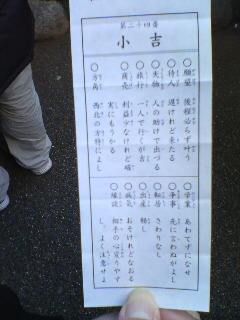 第二十四番
小吉
○願望 後程必らず叶う
○待人 遅けれど来たる
○失物 人の助けで出づる
○旅行 一人で行くが吉
○商売 利益少なけれど確
実にもうかる
○方角 西北の方特によし
○学業 あわてずになせ
○争事 先に言わぬがよし
○転居 さわりなし
○出産 軽し
○病気 おそけれどなおる
○縁談 相手の心変りやす
し、よく注意せよ